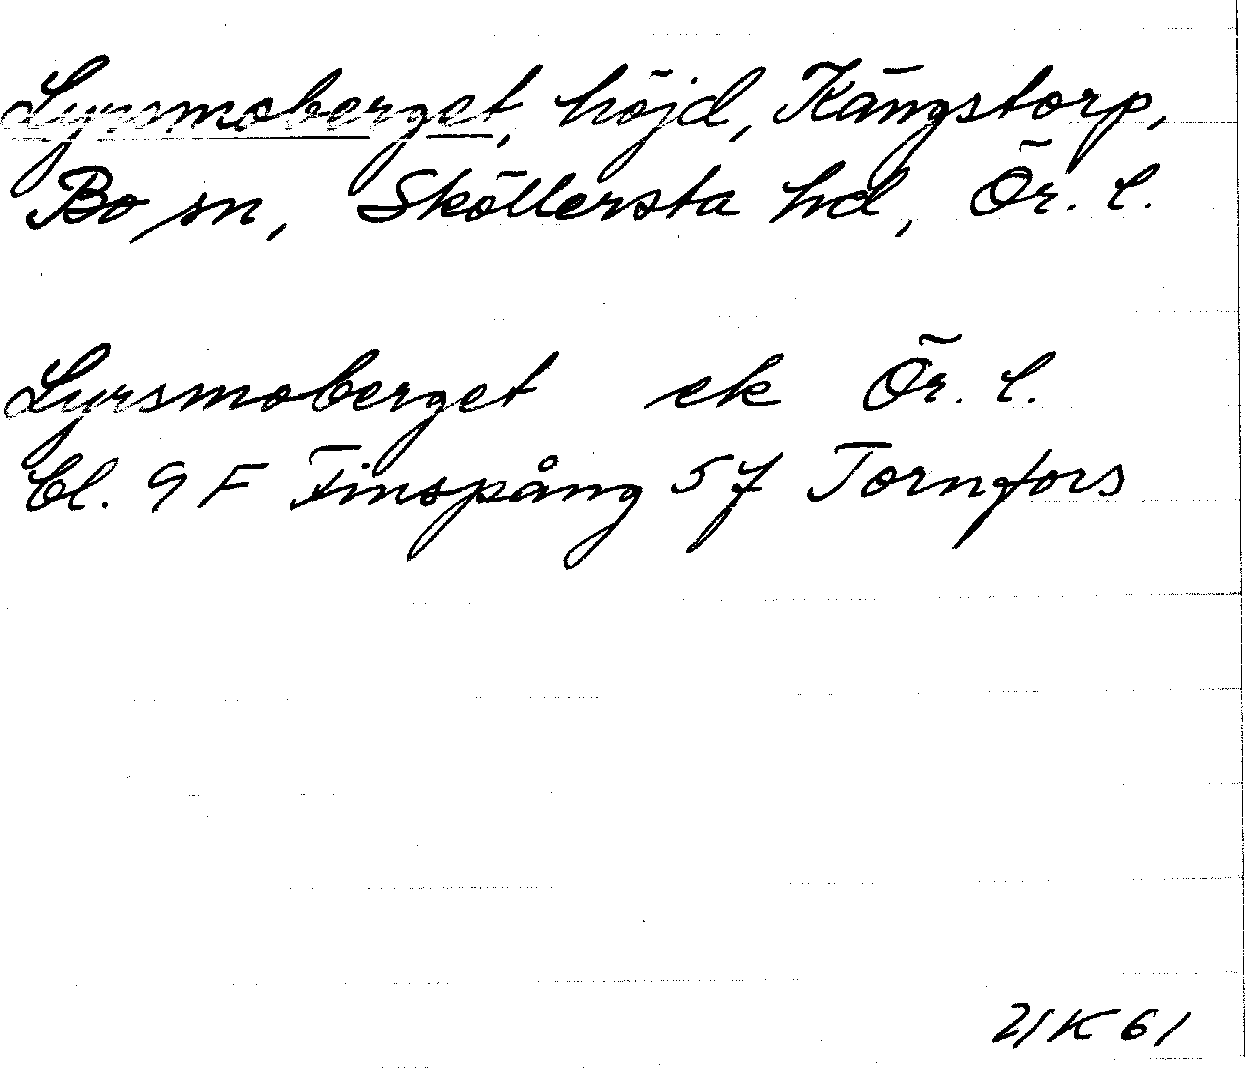 Lyrsmoberget, höjd, Kängstorp,
Bo sn, Sköllersta hd, Ör. l.
Lyrsmoberget ek Ör. l.
bl. 9 F Finspång 57 Tornfors
21 K 61